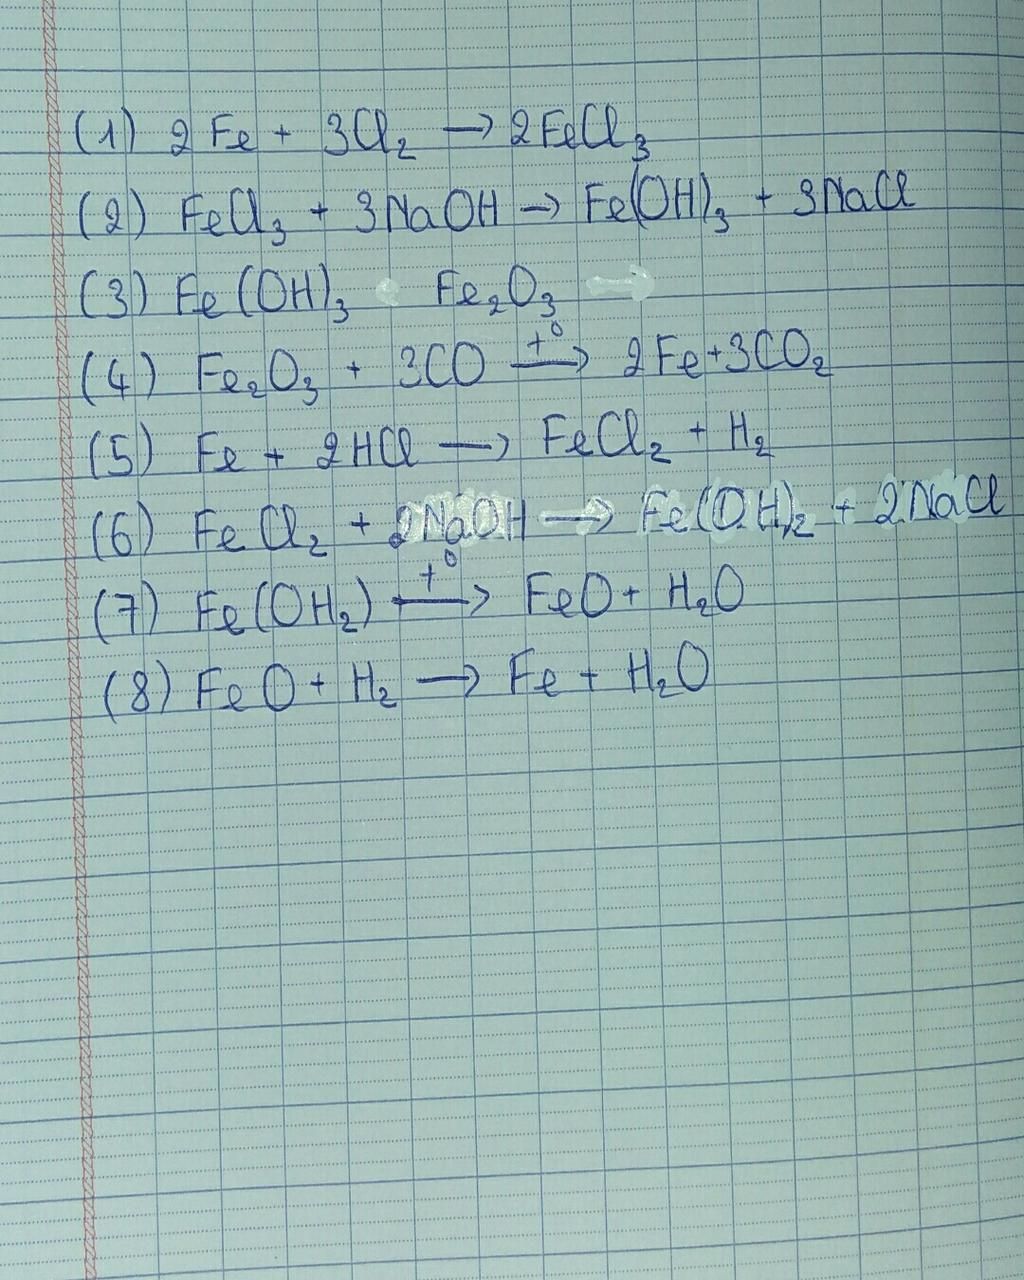 (1) 2Fe + 3Cl₂ → 2FeCl₃
(2) FeCl₃ + 3NaOH → Fe(OH)₃ + 3NaCl
(3) Fe(OH)₃ Fe₂O₃
(4) Fe₂O₃ + 3CO \xrightarrow{t°} 2Fe+3CO₂
(5) Fe + 2HCl → FeCl₂ + H₂
(6) FeCl₂ + 2NaOH → Fe(OH)₂ + 2NaCl
(7) Fe(OH₂) \xrightarrow{t°} FeO + H₂O
(8) FeO + H₂ → Fe + H₂O